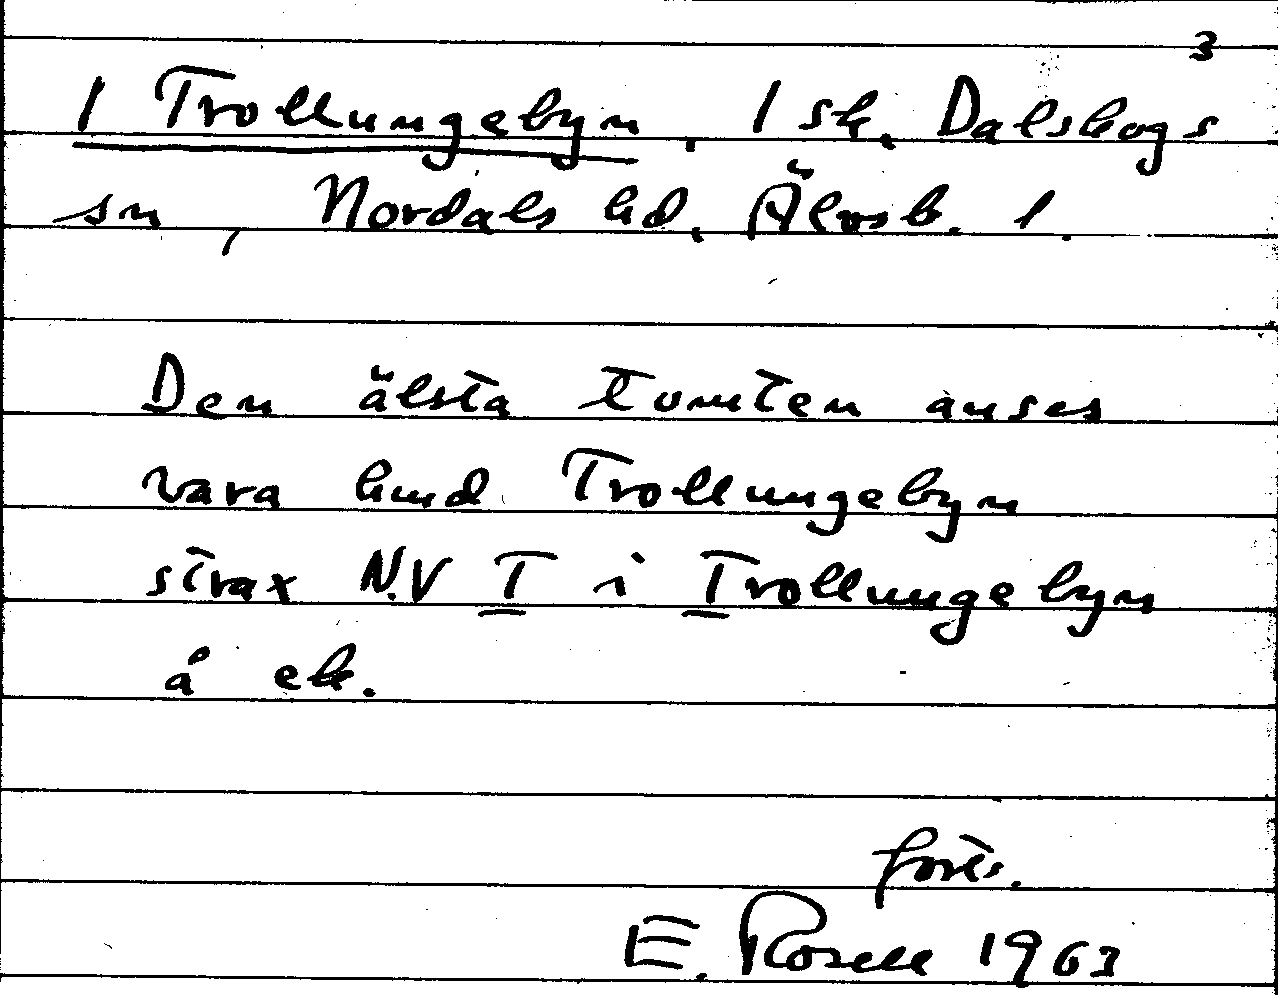 3
1 Trollungebyn, 1 sk, Dalskogs
sn, Nordals hd, Älvsb. l.
Den älsta tomten anses
vara kund Trollungebyn
strax N.V T i Trollungebyn
å ek.
forts.
E. Rosell 1963